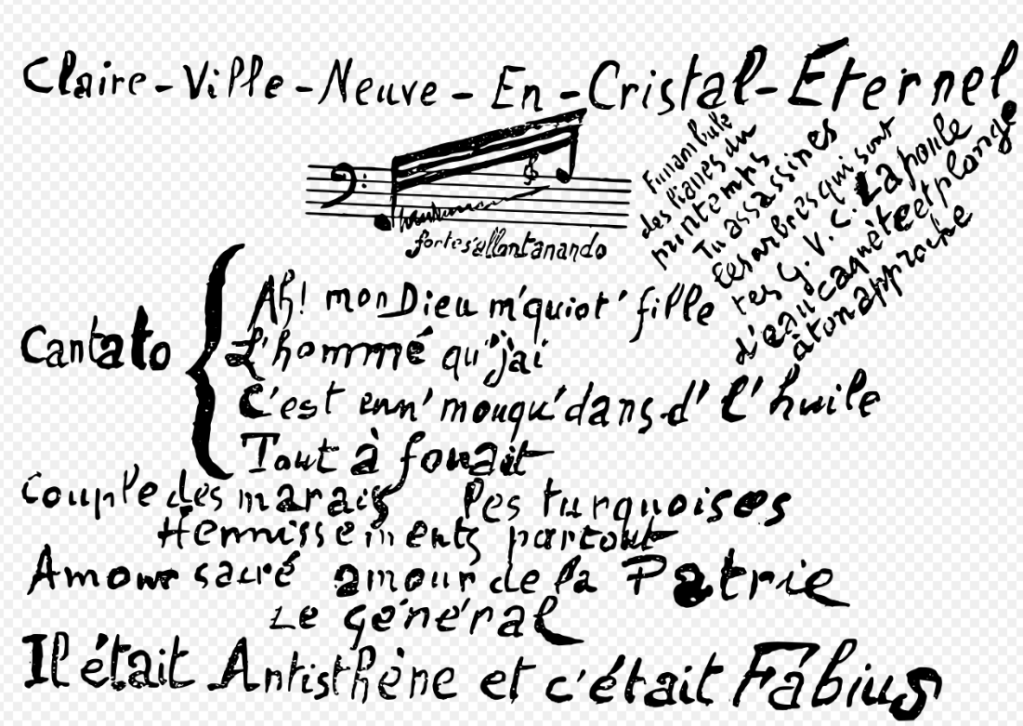 Claire-Ville-Neuve-En-Cristal-Eternel
forte s'allontanando
Funambule
des lianes du
printemps
Tu assassines
les arbres qui sont
tes G. V. C. La poule
d'eau caquète et plonge
à ton approche
Cantato
Ah! mon Dieu m'quiot' fille
L'homme qu'j'ai
C'est enn' mouqu' dans d' l'huile
Tout à fouait
Couple des marais Les turquoises
Hennissements partout
Amour sacré amour de la Patrie
Le général
Il était Antisthène et c'était Fabius